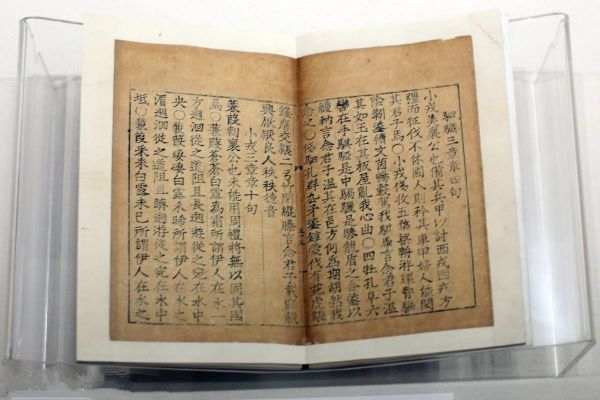 駟驖三章章四句
小戎美襄公也備其兵甲以討西戎西戎方
彊而征伐不休國人則矜其車甲婦人能閔
其君子焉○小戎俴收五楘梁輈游環脅驅
陰靷鋈續文茵暢轂駕我騏馵言念君子溫
其如玉在其板屋亂我心曲○四牡孔阜六
轡在手騏駵是中騧驪是驂龍盾之合鋈以
觼軜言念君子溫其在邑方何為期胡然我
念之○俴駟孔群厹矛鋈錞蒙伐有苑虎韔
鏤膺交韔二弓竹閉緄縢言念君子載寢載
興厭厭良人秩秩德音
小戎三章章十句
蒹葭刺襄公也未能用周禮將無以固其國
焉○蒹葭蒼蒼白露為霜所謂伊人在水一
方遡洄從之道阻且長遡游從之宛在水中
央○蒹葭淒淒白露未晞所謂伊人在水之
湄遡洄從之道阻且躋遡游從之宛在水中
坻○蒹葭采采白露未已所謂伊人在水之